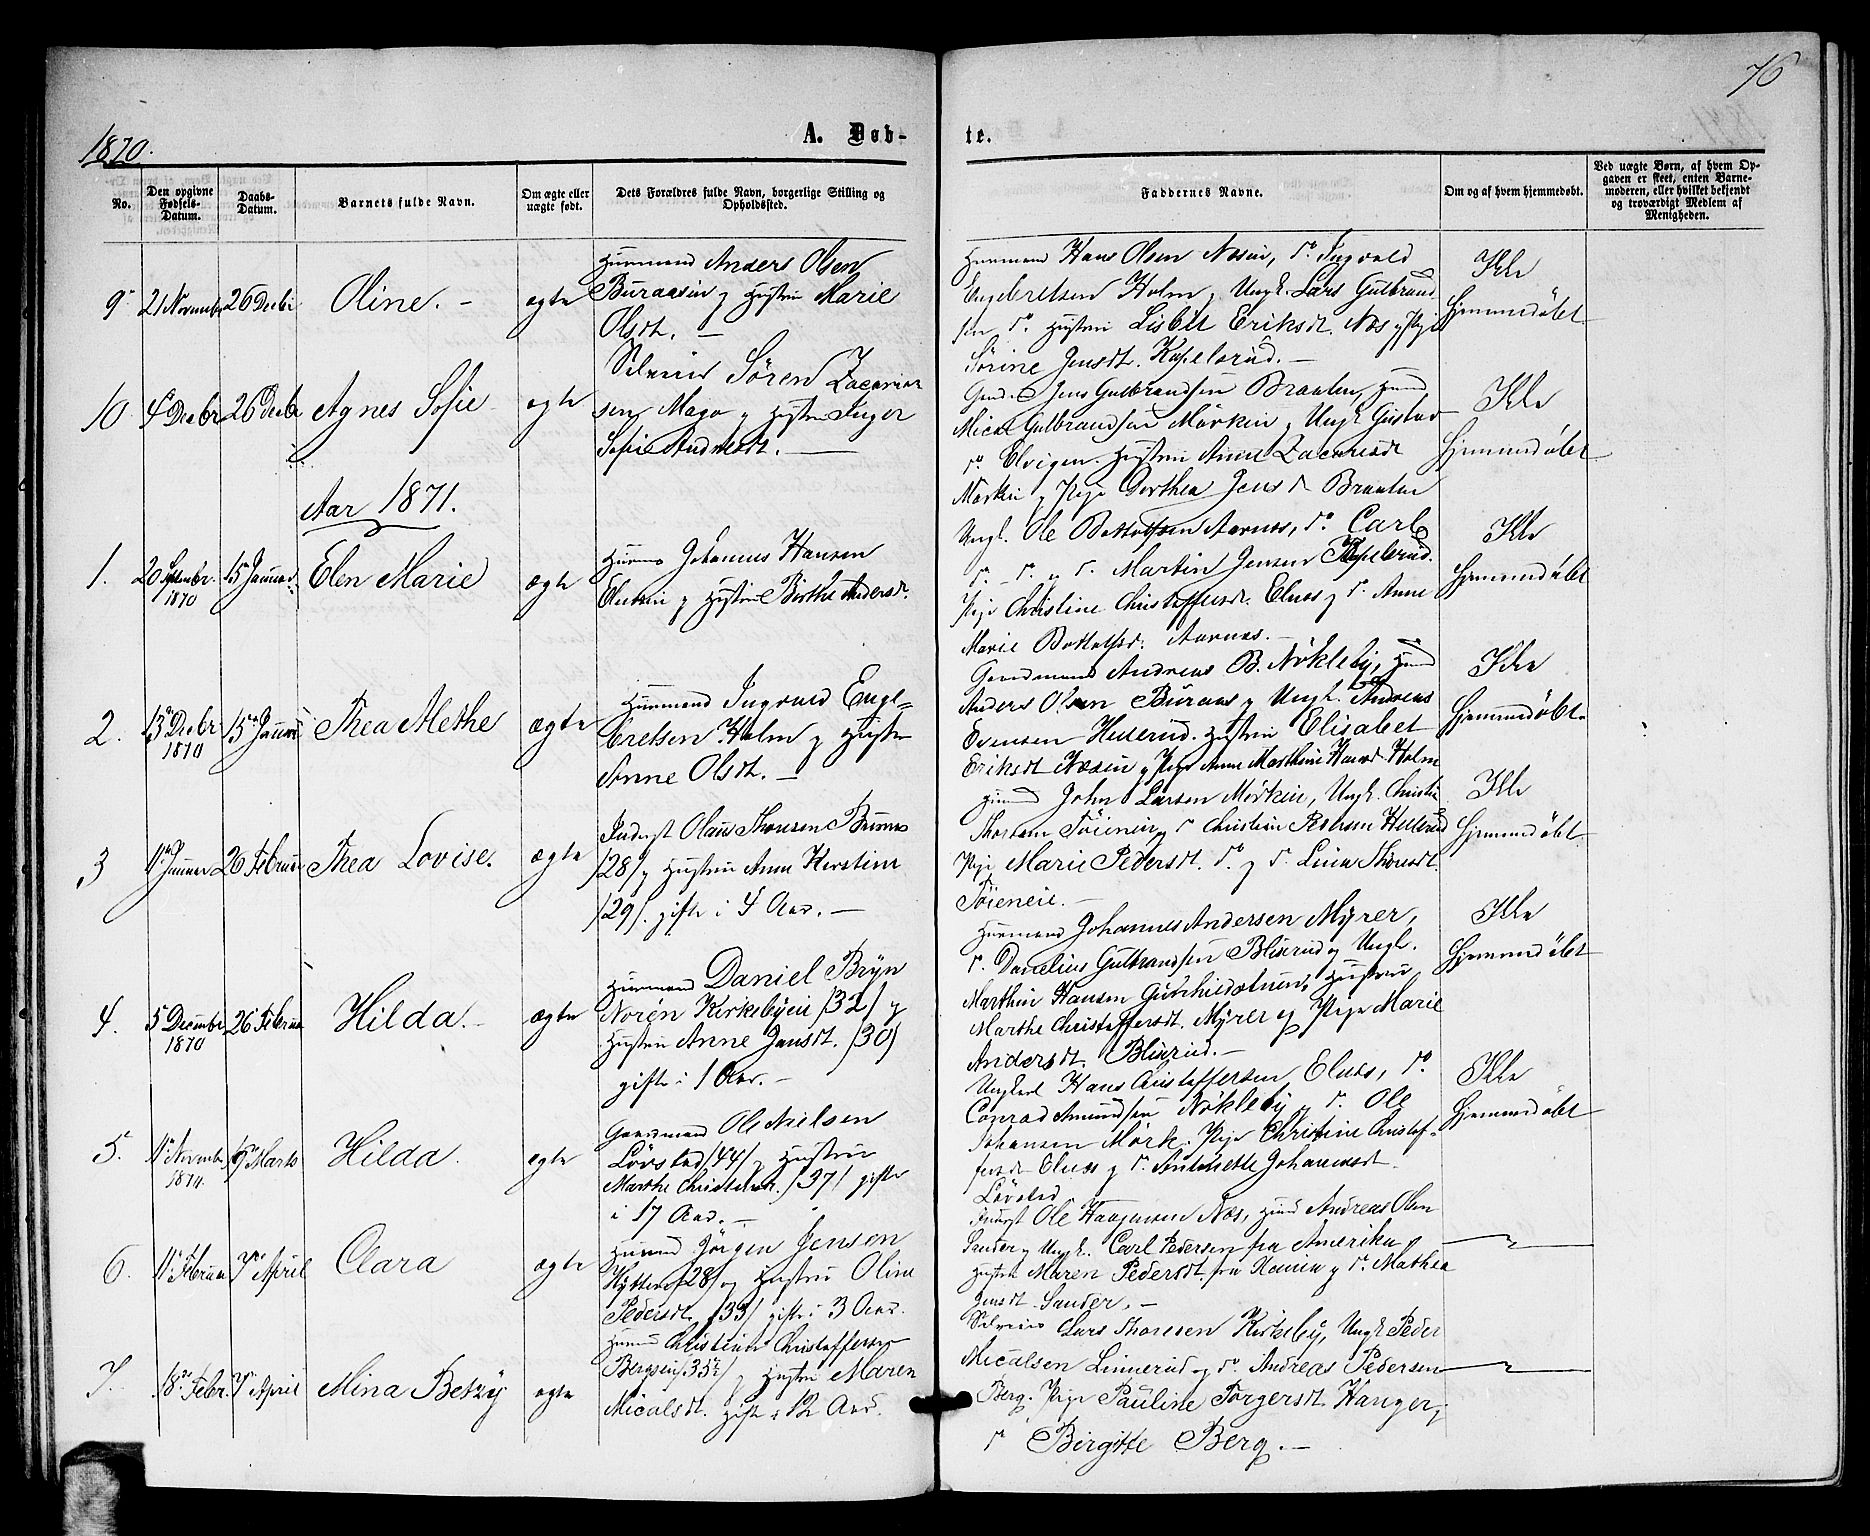 76
1870.
A. Døb-
te.
No.
Den opgivne Fødsels-Datum.
Daabs-Datum.
Barnets fulde Navn.
Om ægte eller uægte født.
Dets Forældres fulde Navn, borgerlige Stilling og Opholdssted.
Faddernes Navne.
Om og af hvem hjemmedøbt.
Ved uægte Børn, af hvem Opgaven er skeet, enten Barnemoderen, eller hvilket bekjendt og troværdigt Medlem af Menigheden.
9
21 November
26 Decbr
Oline. -
ægte
Huusmand Anders Olsen
Buraasein og Hustru Marie
Olsdt. -
Huusmand Hans Olsen Næsein, do Ingvald
Engebretsen Holm og Ungk. Lars Gulbrand
sen do Hustru Lisbet Eriksdt. Næs og Pige
Sørine Jensdt. Kapelsrud. -
Ikke
Hjemmedøbt
10
4 Decbr
26 Decbr
Agnes Sofie
ægte
Søren Zacarias
sen Magø og Hustru Inger
Sofie Andersdt. -
Gmd. Jens Gulbrandsen Braaten, Huusmd
Micael Gulbrandsen Mørkein, Ungk Gustav
do Elvigen. Hustru Anne Zacariasdt
Mørkein og Pige Dorthea Jensdt Braaten
Ikke
Hjemmedøbt
Aar 1871.
1.
20 Septembr. 1870
15 Januar
Elen Marie
ægte
Huusmd Johannes Hansen
Eluesein og Hustru Birthe Andersdt.
Ungk. Ole Bottolfsen Aarnæs, do Carl
do do og do Martin Jensen Kapelsrud.
Pige Christine Christoffersdt. Elues og do Anne
Marie Bottolfsdt. Aarnæs. -
Ikke
Hjemmedøbt
2.
13 Decbr 1870
15 Januar
Thea Methe
ægte
Huusmand Ingvald Enge-
bretsen Holm og Hustru
Anne Olsdt. -
Gaardmand Andreas B. Nökleby, Huusmd
Anders Olsen Buraas og Ungk. Andreas
Evensen Hellerud. Hustru Elisabet
Eriksdt Næsein og Pige Anne Marthine Hansd. Holm
Ikke
Hjemmedøbt.
3
11 Januar
26 Februar
Thea Lovise.
ægte
Inderst Olaus Thoresen
/28/ og Hustru Anne Kirstine
/29/. gifte i 4 Aar. -
Huusmd John Larsen Mørkein, Ungk. Christian
Thoresen Töienein og do Christian Pedersen Hellerud
Pige Marie Pedersdt. do og do Lina Thoresdt.
Töieneie. -
Ikke
Hjemmedøbt
4.
5 December 1870
26 Februar
Hilda. -
ægte
Huusmand Daniel Bryn
Norén Kirkebyein /32/ og
Hustru Anne Jansdt. /30/
gifte i 1 Aar. -
Huusmand Johannes Andersen Myrer,
do Danelius Gulbrandsen Bliksrud og Ungk.
Marthin Hansen Hustru
Marthe Christoffersdt. Myrer og Pige Marie
Andersdt. Bliksrud. -
Ikke
Hjemmedøbt
5.
11 November 1870.
19 Marts
Hilda.
ægte
Gaardmand Ole Nielsen
Lövstad /44/ og Hustru
Marthe /37/ gifte
i 17 Aar. -
Ungkarl Hans Christoffersen Elues, do
Conrad Amundsen Nökleby og do Ole
Johansen Mörk. Pige Christine Christof-
fersdt Elues og do Antonette Johannesdt.
Lövstad
Ikke
Hjemmedøbt
6.
11 Februar
7 April
Clara
ægte
Huusmd Jörgen Jensen
Hytten /28/ og Hustru Oline
Pedersdt. /33/ gifte i 3 Aar.
Inderst Ole Haagensen Næs, Huusmd Andreas Olsen
Sander og Ungk. Carl Pedersen fra Amerika,
Hustru Maren Pedersdt. fra og do Mathea
Jensdt. Sander. -
7.
18 Febr.
7 April
Mina Betzy
ægte
Huusmd Christian Christoffersen
Bergsein /35½/ og Hustru Maren
Micalsdt. gifte i 12 Aar.
Lars Thoresen Kirkeby, Ungk Peder
Micalsen Linnerud og do Andreas Pedersen
Berg. Pige Pauline Torgersdt. Hanger,
do Birgitte Berg. -